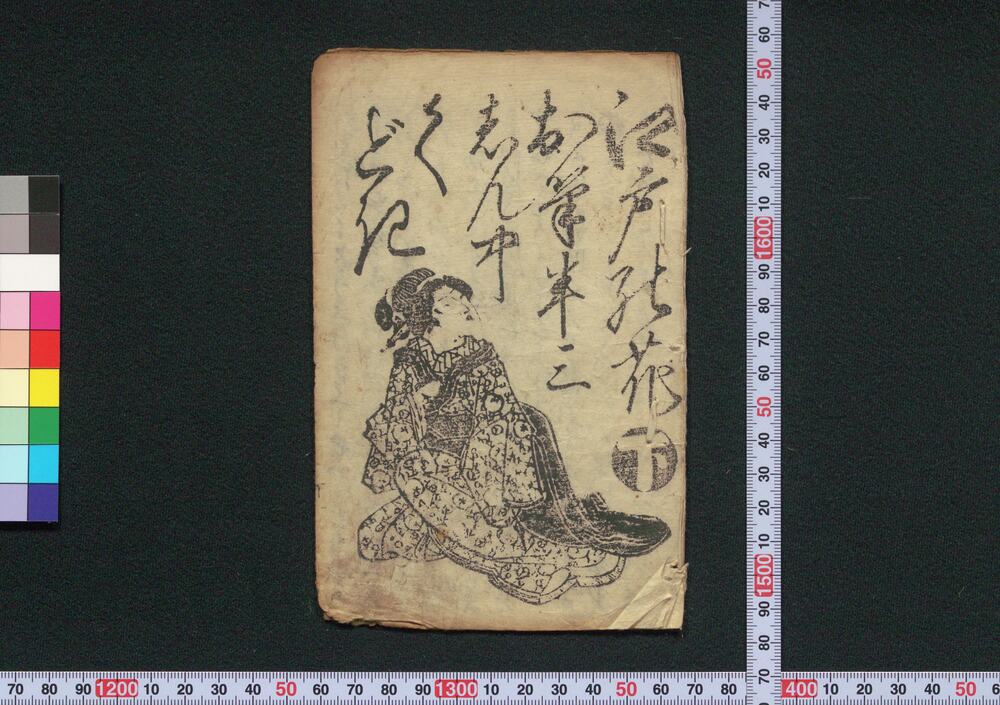 江戸の花 下
お筆半三
志ん中
く
どき
60 50 40 30 20 10 1600 90 80 70 60 50 40 30 20 10 1500 90 80 70
70 80 90 1200 10 20 30 40 50 60 70 80 90 1300 10 20 30 40 50 60 70 80 400 10 20 30 40 50